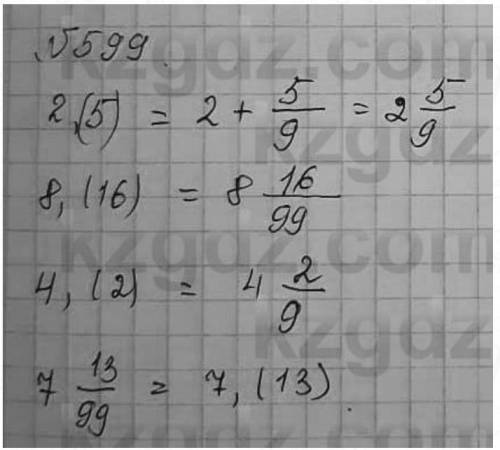 №599.
2,(5) = 2 + 5/9 = 2 5/9
8,(16) = 8 16/99
4,(2) = 4 2/9
7 13/99 = 7,(13).
kzgdz.com
kzgdz
kzgdz.com
kzgdz
kzgdz.com